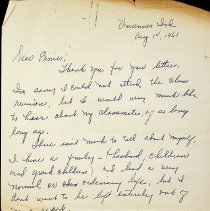 Vincennes Ind
Aug 14, 1961
Dear Ernie:
Thank you for your letter.
I'm sorry I could not attend the class
reunion, but I would very much like
to hear about my classmates, of so long
long ago.
There isn't much to tell about myself.
I have a family - (husband, children
and grand children) and lead a very
normal or ordinary life, but I
don't want to be left entirely out of